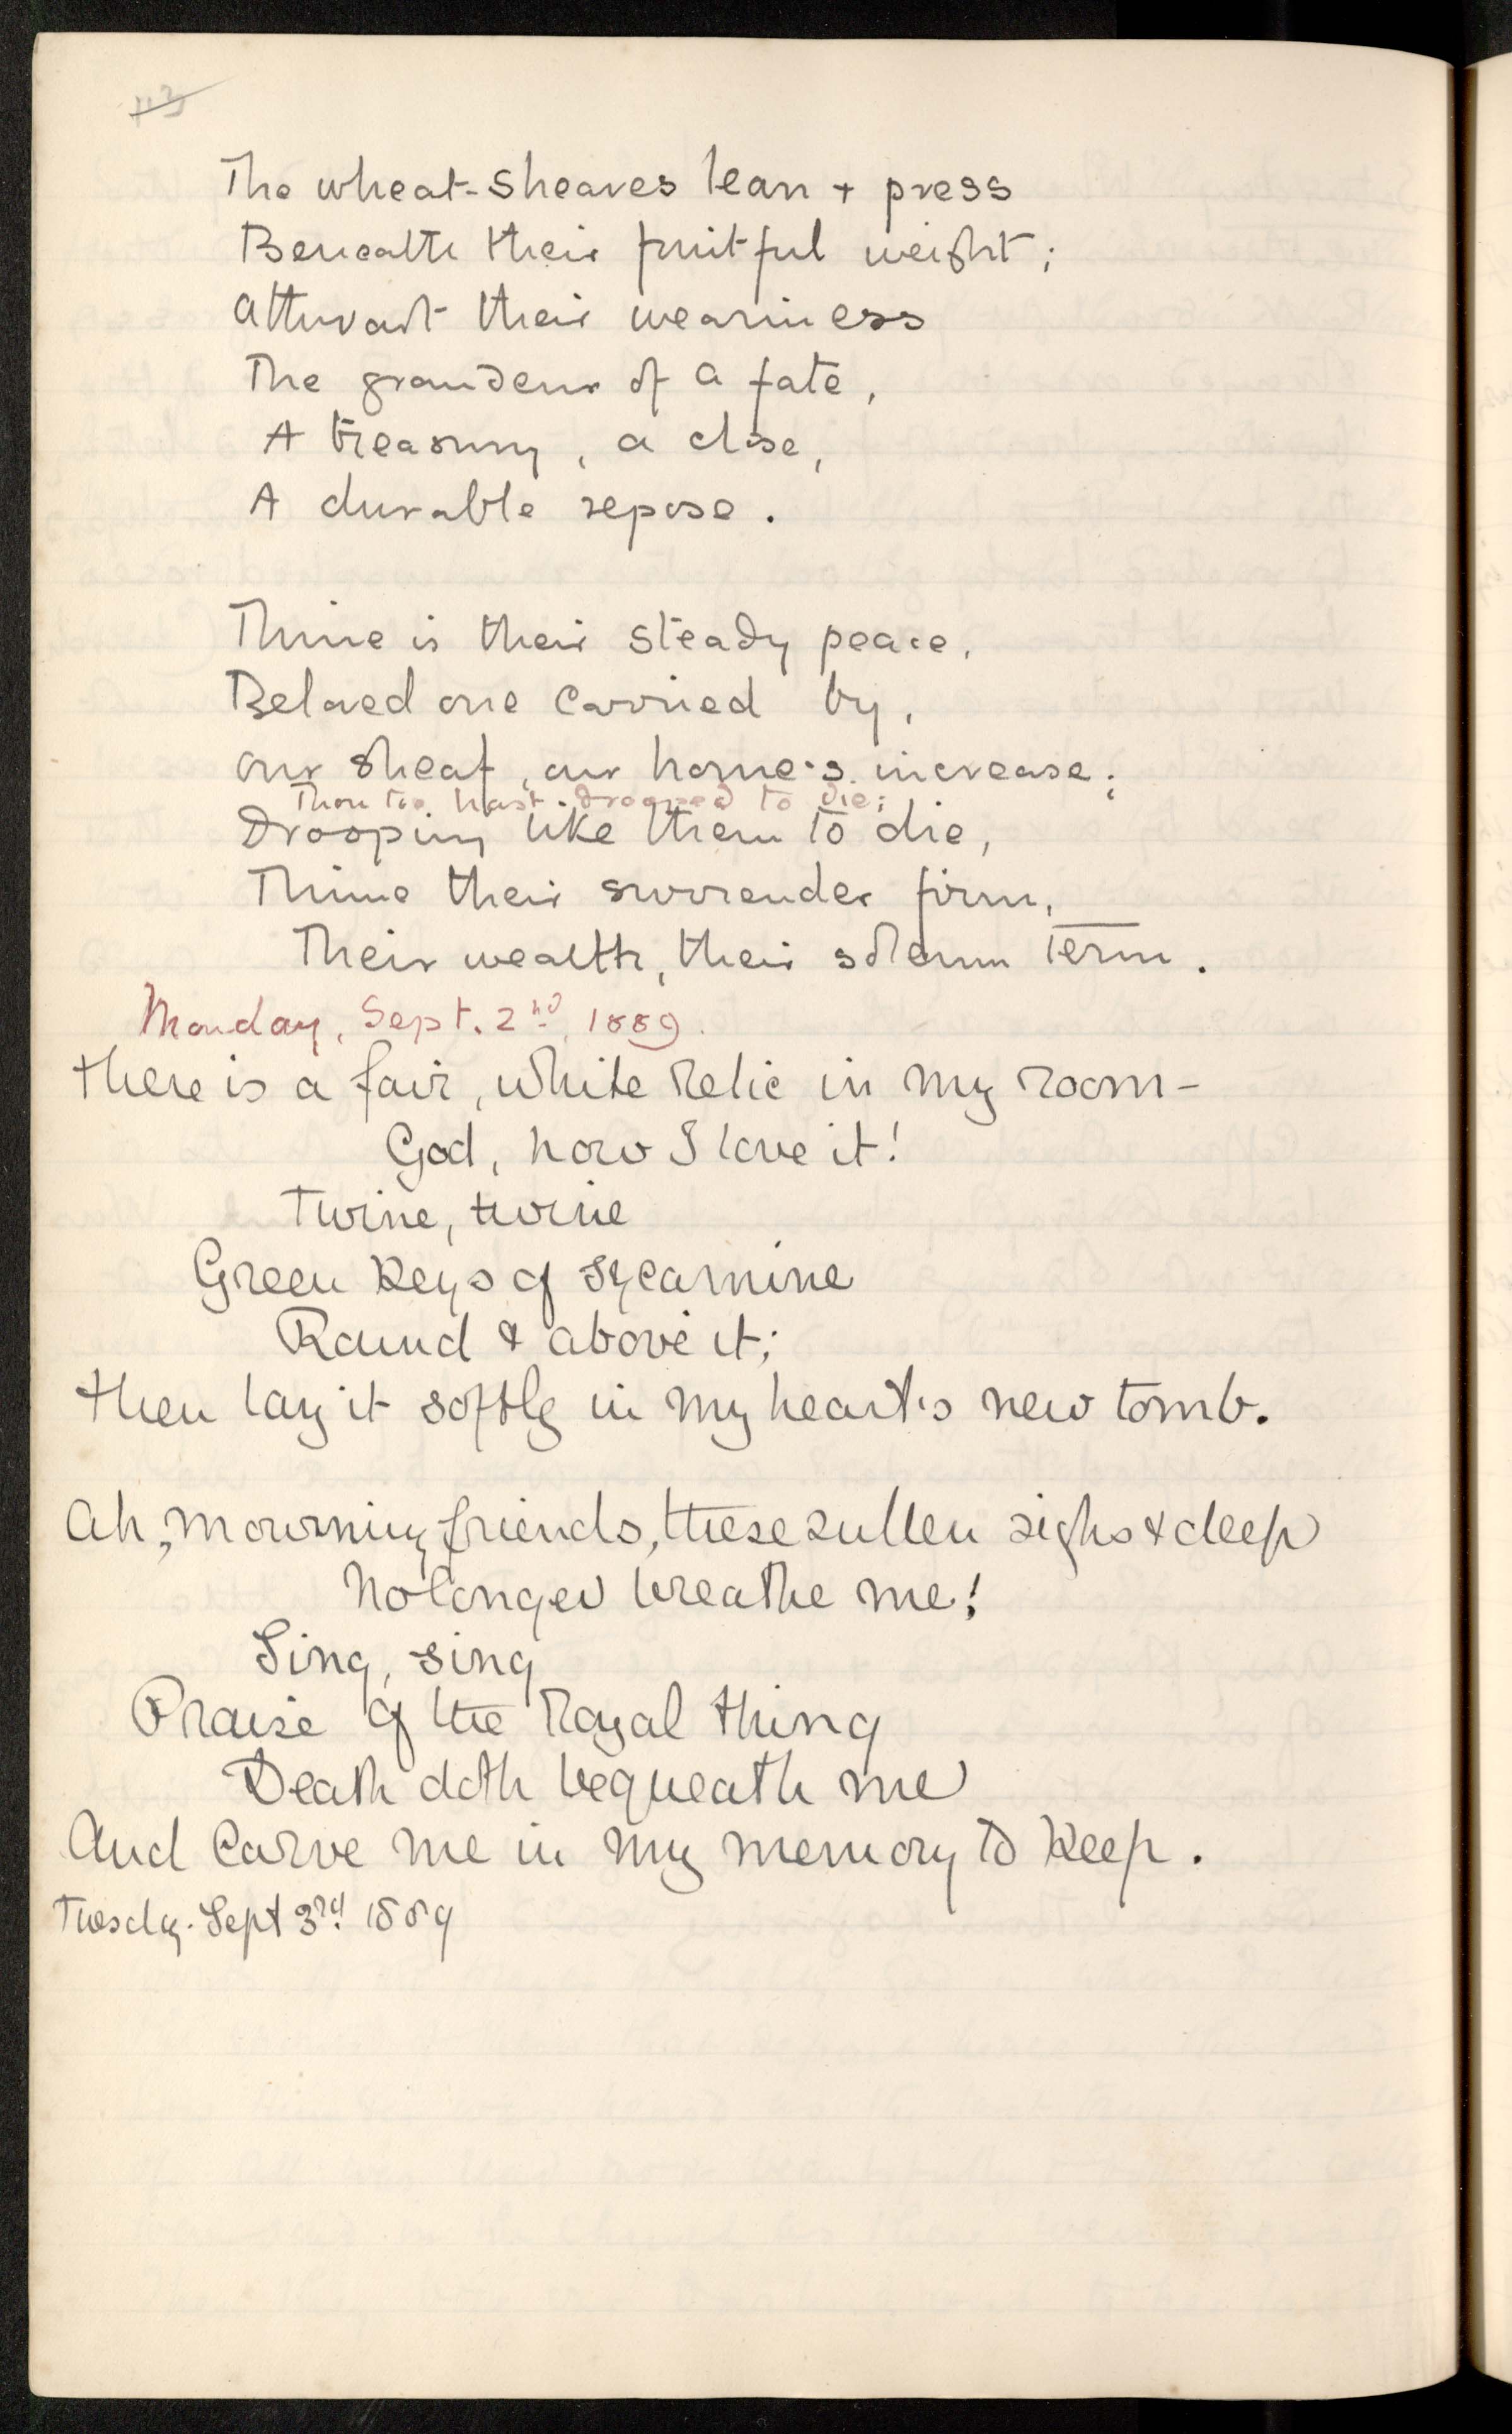 113
The wheat-sheaves lean + press
Beneath their fruitful weight;
Athwart their weariness
The grandeur of a fate,
A treasury, a close,
A durable repose.
Thine is their steady peace,
Beloved one carried by,
Our sheaf, our home's increase;
Thou too hast drooped to die;
Drooping like them to die,
Thine their surrender firm,
Their wealth, their solemn term.
Monday, Sept. 2nd, 1889.
There is a fair, white relic in my room-
God, how I love it!
Twine, twine
Green keys of sycamine
Round & above it;
Then lay it softly in my heart's new tomb.
Ah, mourning friends, these sullen sighs & deep
No longer breathe me!
Sing, sing
Praise of the Royal thing
Death doth bequeath me
And carve me in my memory to keep.
Tuesdy. Sept 3rd. 1889